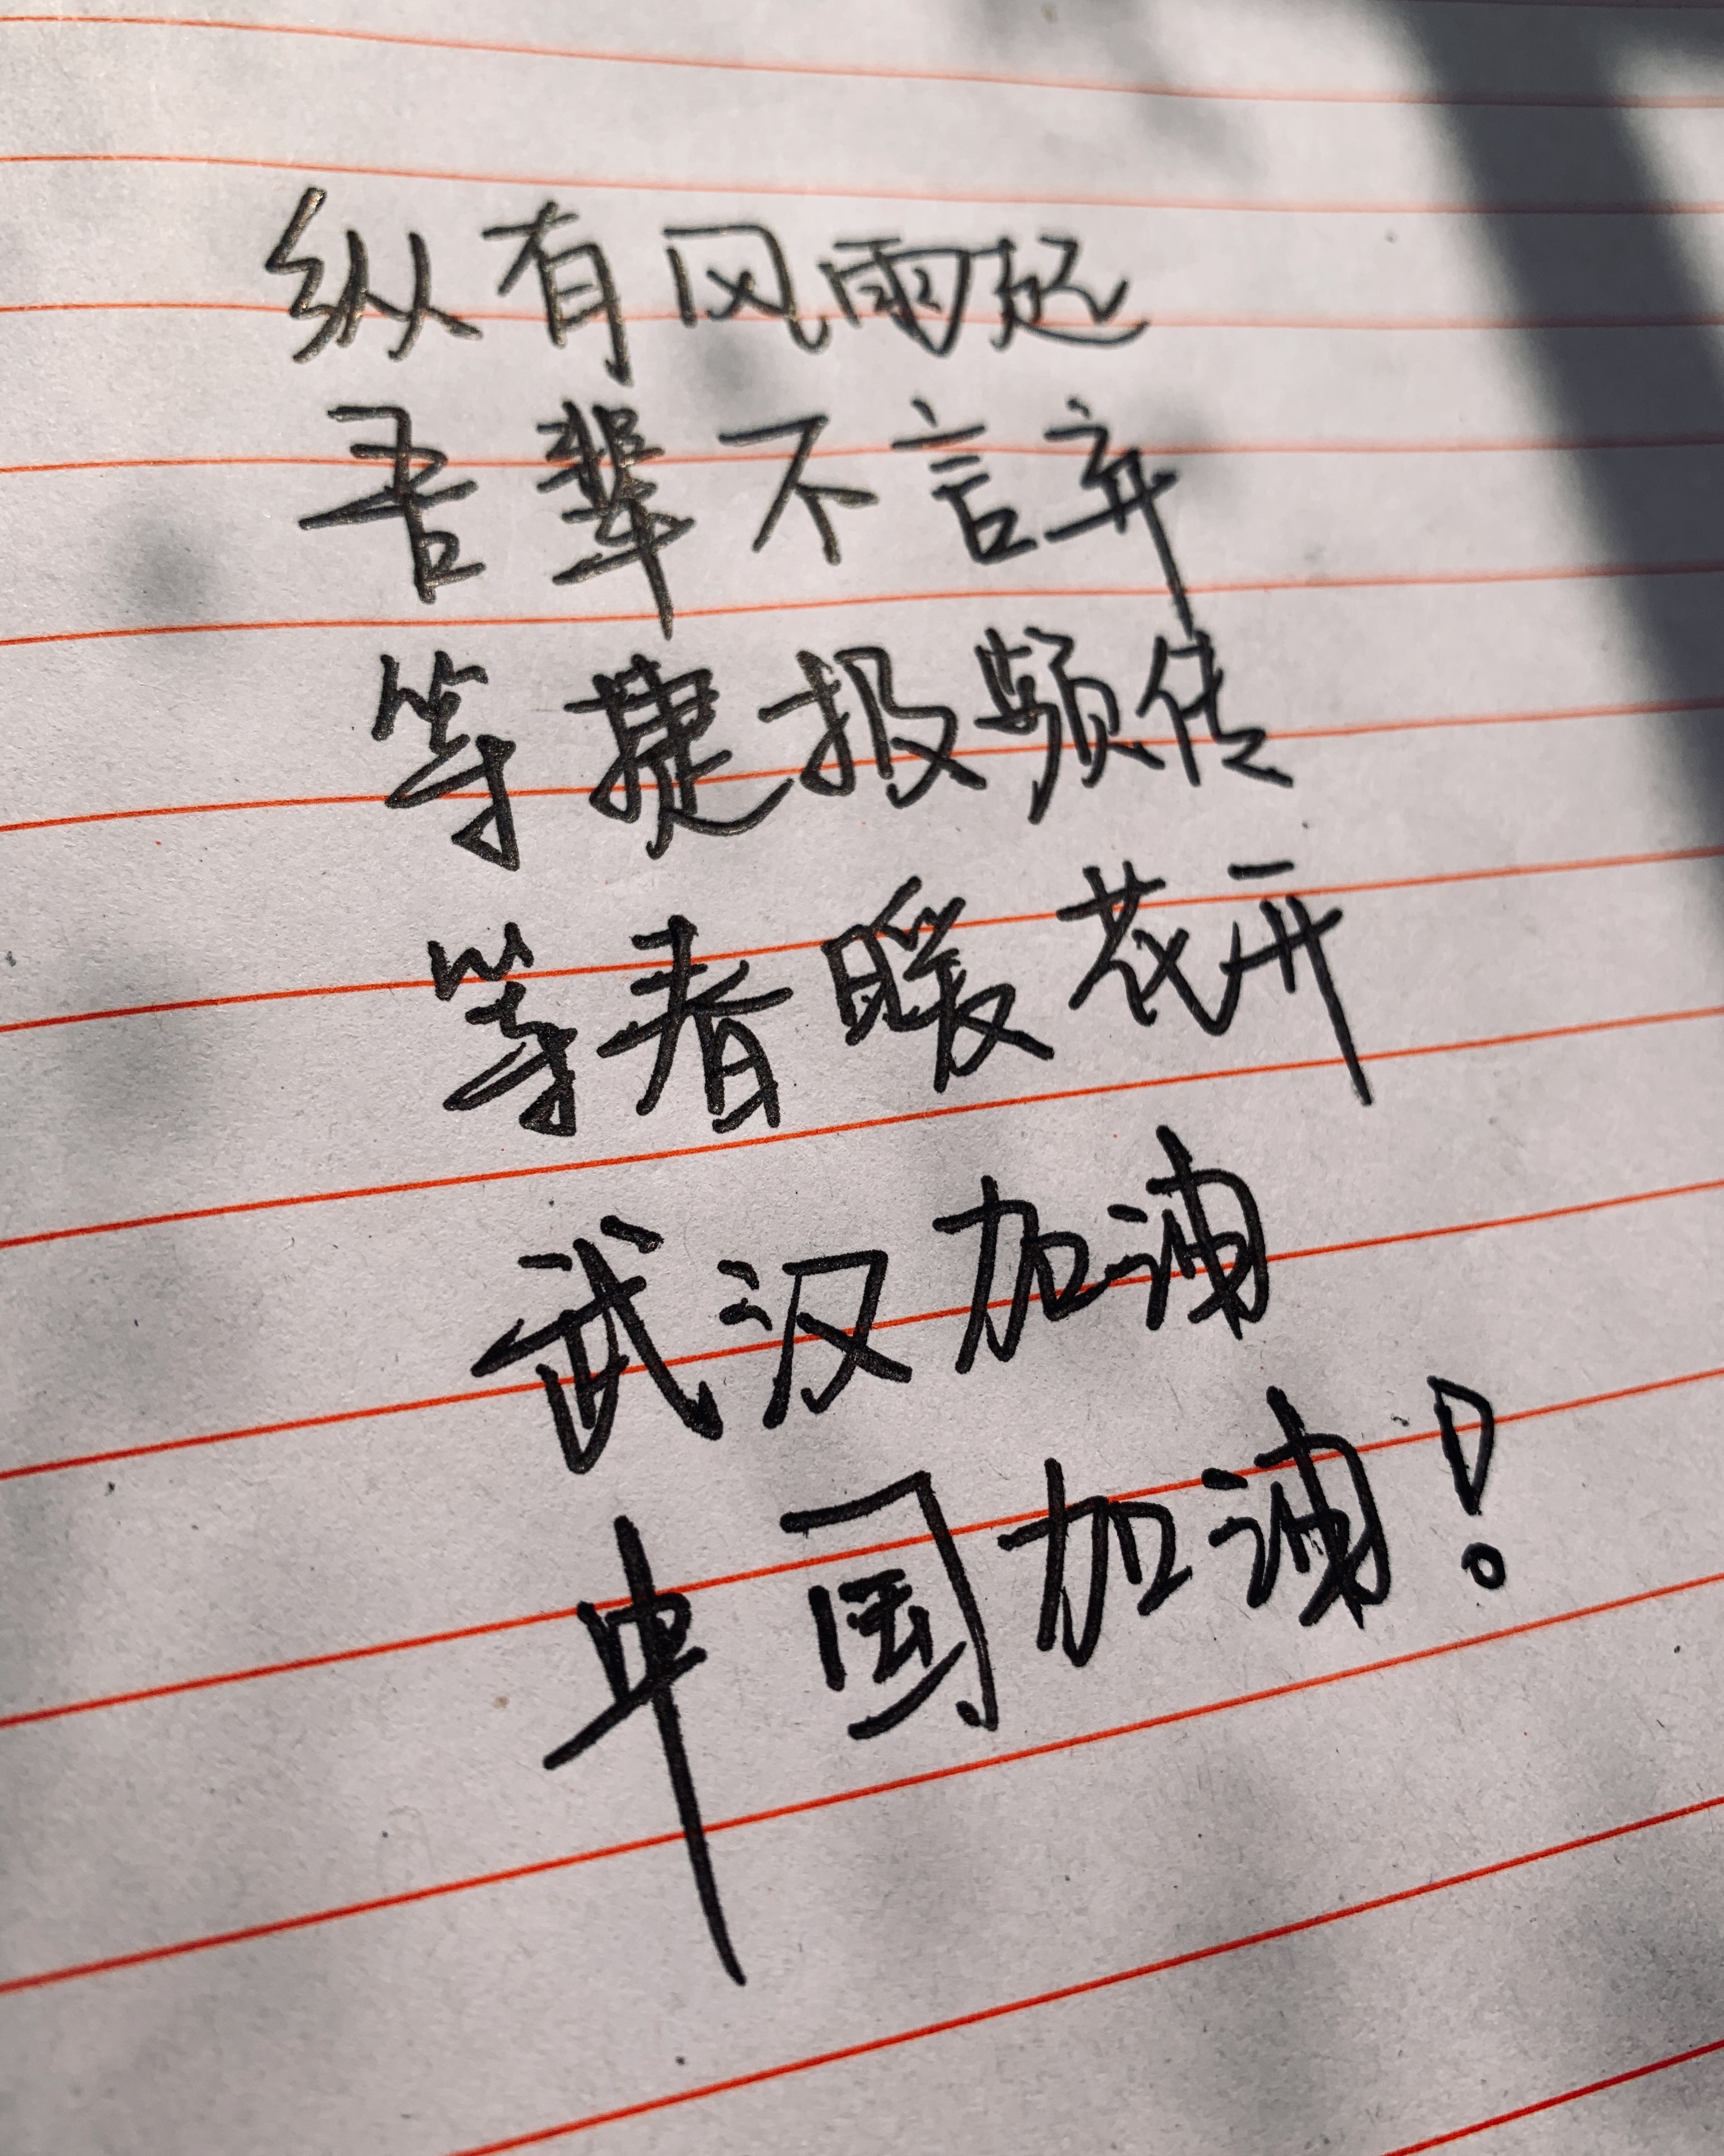 纵有风雨起
吾辈不言弃
等捷报频传
等春暖花开
武汉加油
中国加油！